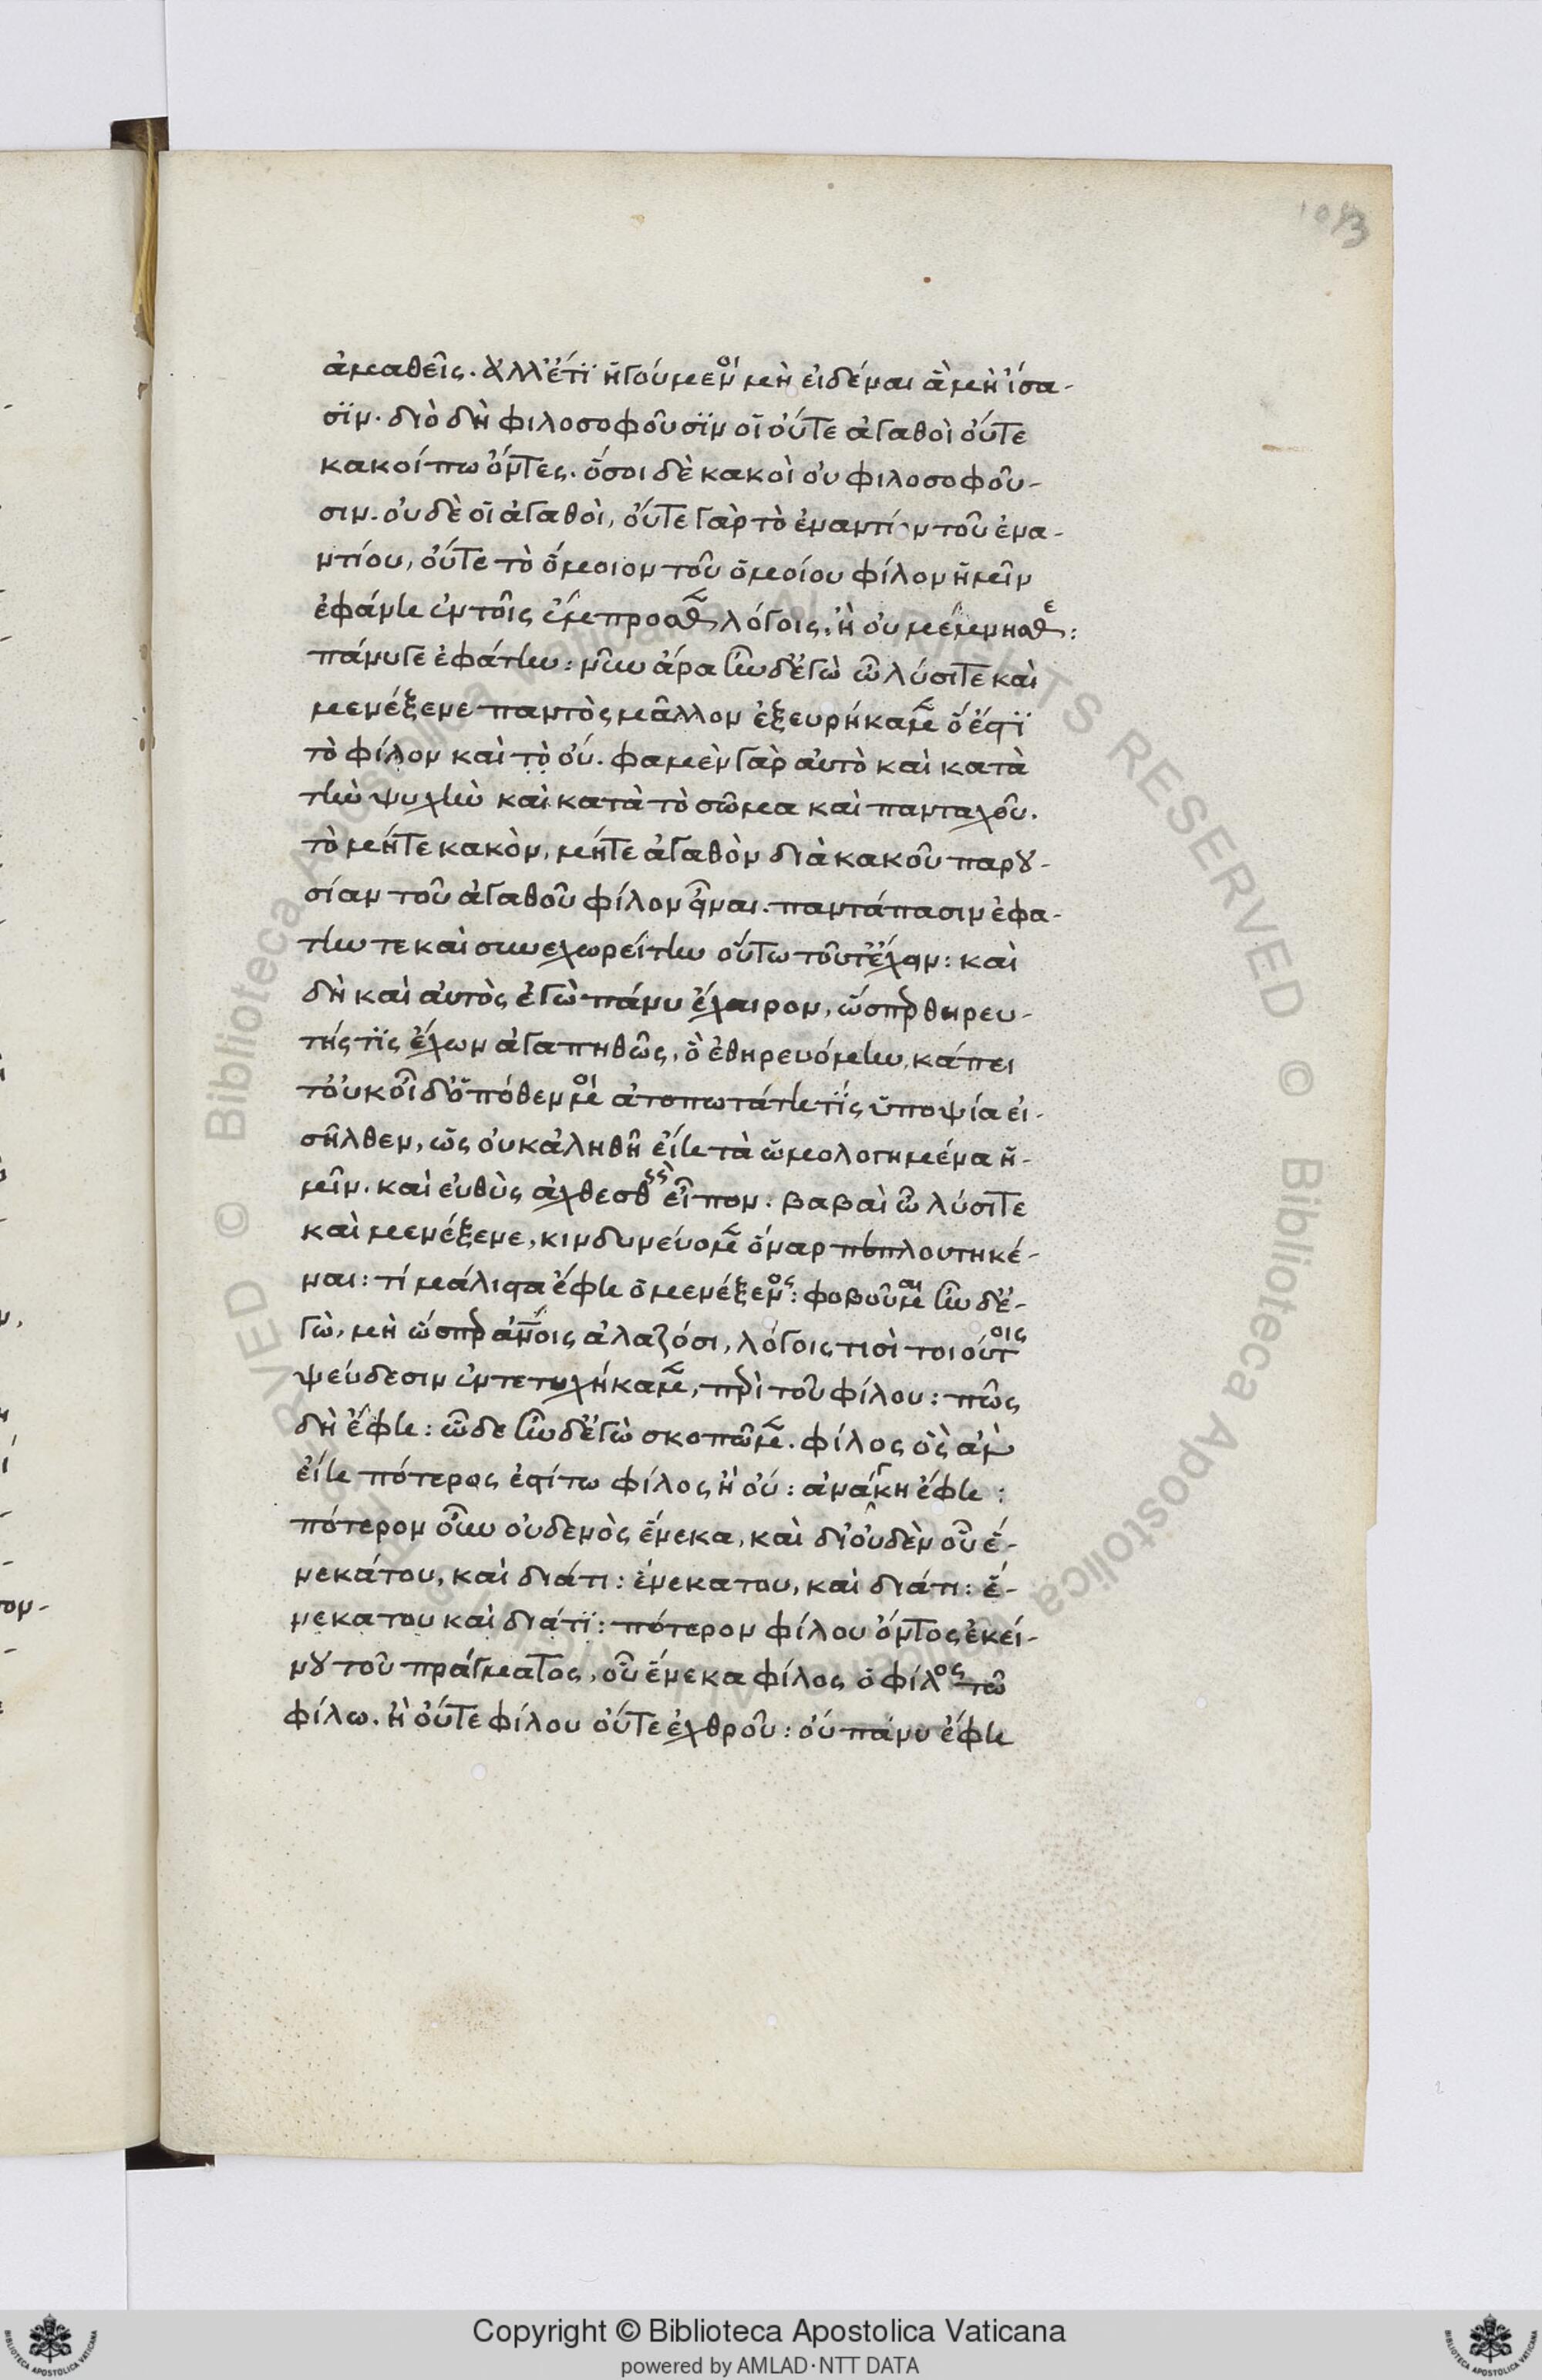 103
ἀμαθεῖς. ἀλλ' ἔτι ἡγούμενοι μὴ εἰδέναι ἃ μὴ ἴσα-
σιν. διὸ δὴ φιλοσοφοῦσιν οἱ οὔτε ἀγαθοὶ οὔτε
κακοί πω ὄντες. ὅσοι δὲ κακοὶ οὐ φιλοσοφοῦ-
σιν. οὐδὲ οἱ ἀγαθοὶ, οὔτε γὰρ τὸ ἐναντίον τοῦ ἐνα-
ντίου, οὔτε τὸ ὅμοιον τοῦ ὁμοίου φίλον ἡμῖν
ἐφάνη ἐν τοῖς ἔμπροσθεν λόγοις, ἢ οὐ μέμνησθε:
πάνυ γε ἐφάτην: νῦν ἄρα ἦν δ' ἐγὼ ὦ λύσι τε καὶ
μενέξενε παντὸς μᾶλλον ἐξευρήκαμεν ὃ ἔστι
τὸ φίλον καὶ τὸ οὔ. φαμὲν γὰρ αὐτὸ καὶ κατὰ
τὴν ψυχὴν καὶ κατὰ τὸ σῶμα καὶ πανταχοῦ.
τὸ μήτε κακὸν, μήτε ἀγαθὸν διὰ κακοῦ παρου-
σίαν τοῦ ἀγαθοῦ φίλον εἶναι. παντάπασιν ἐφα-
την τε καὶ συνεχωρείτην οὕτω τοῦτ' ἔχειν: καὶ
δὴ καὶ αὐτὸς ἐγὼ πάνυ ἔχαιρον, ὥσπερ θηρευ-
τής τις ἔχων ἀγαπηθῶς, ὃ ἐθηρευόμην, κάπει
τ' οὐκ οἶδ' ὁπόθεν μοι ἀτοπωτάτη τίς ὑποψία εἰ-
σῆλθεν, ὡς οὐκ ἀληθῆ εἴη τὰ ὡμολογημένα ἡ-
μῖν. καὶ εὐθὺς ἀχθεσθεὶς εἶπον: βαβαὶ ὦ λύσι τε
καὶ μενέξενε, κινδυνεύομεν ὄναρ πεπλουτηκέ-
ναι: τί μάλιστα ἔφη ὁ μενέξενος: φοβοῦμαι ἦν δ' ἐ-
γὼ, μὴ ὥσπερ ἀνθρώποις ἀλαζόσι, λόγοις τισὶ τοιούτοις
ψεύδεσιν ἐντετυχήκαμεν, περὶ τοῦ φίλου: πῶς
δὴ ἔφη: ὧδε ἦν δ' ἐγὼ σκοπῶμεν. φίλος ὃς ἂν
εἴη πότερος ἐστί τω φίλος ἢ οὔ: ἀνάγκη ἔφη:
πότερον οὖν οὐδενὸς ἕνεκα, καὶ δι' οὐδὲν οὗ ἕ-
νεκά του, καὶ διάτι: ἕνεκα του, καὶ διάτι: ἕ-
νεκα του καὶ διάτι: πότερον φίλου ὄντος ἐκεί-
νου τοῦ πράγματος, οὗ ἕνεκα φίλος ὁ φίλος τῶ
φίλω. ἢ οὔτε φίλου οὔτε ἐχθροῦ: οὐ πάνυ ἔφη
Copyright © Biblioteca Apostolica Vaticana
powered by AMLAD·NTT DATA